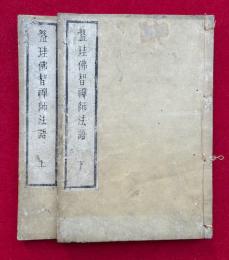 盤珪佛智禪師法語 上
盤珪佛智禪師法語 下